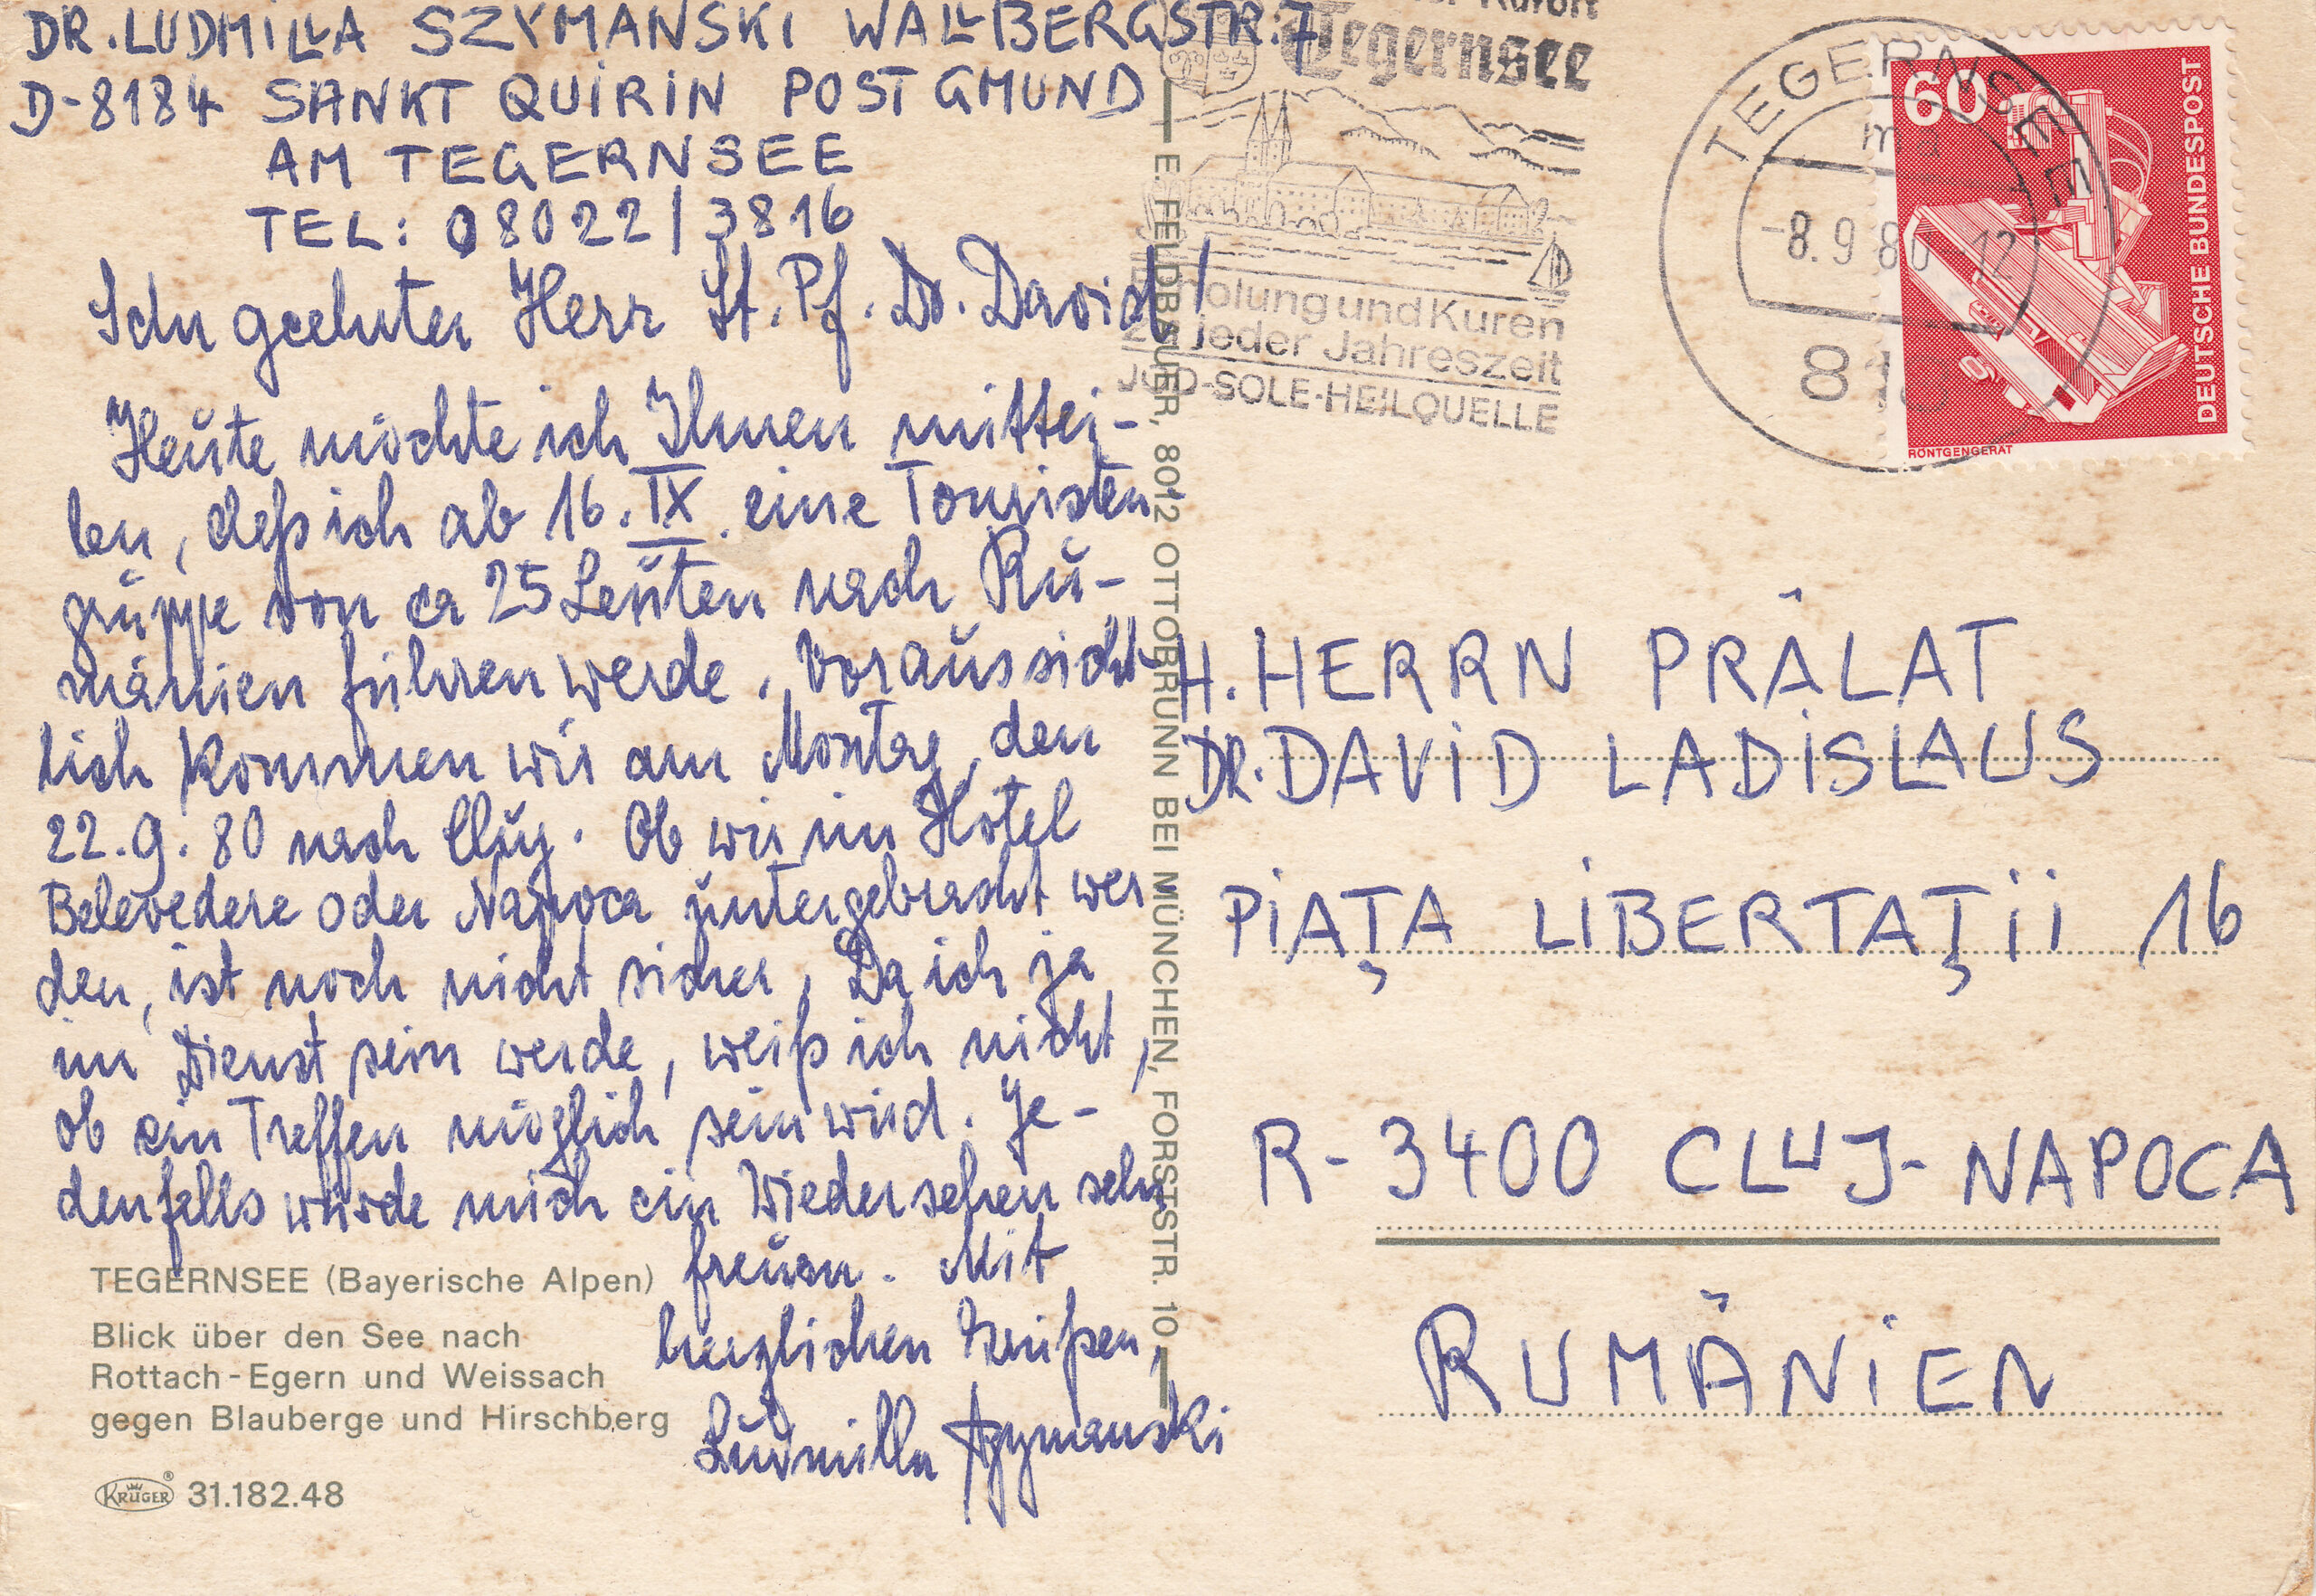 DR. LUDMILLA SZYMANSKI WALLBERGSTR. 7
D-8184 SANKT QUIRIN POST GMUND
AM TEGERNSEE
TEL: 08022/3816
Sehr geehrter Herr St. Pf. Dr. David!
Heute möchte ich Ihnen mittei-
len, daß ich ab 16. IX. eine Touristen
gruppe von ca 25 Leuten nach Ru-
mänien führen werde. Voraussicht-
lich kommen wir am Montag, den
22.9.80 nach Cluj. Ob wir im Hotel
Belevedere oder Napoca untergebracht wer
den, ist noch nicht sicher. Da ich ja
im Dienst sein werde, weiß ich nicht,
ob ein Treffen möglich sein wird. Je-
denfalls würde mich ein Wiedersehen sehr
freuen. Mit
herzlichen Grüßen,
Ludmilla Szymanski
TEGERNSEE (Bayerische Alpen)
Blick über den See nach
Rottach-Egern und Weissach
gegen Blauberge und Hirschberg
KRÜGER® 31.182.48
E. FELDBAUER, 8012 OTTOBRUNN BEI MÜNCHEN, FORSTSTR. 10
Kurort
Tegernsee
Erholung und Kuren
zu jeder Jahreszeit
JOD-SOLE-HEILQUELLE
TEGERNSEE
-8.9.80 12
60
DEUTSCHE BUNDESPOST
RÖNTGENGERÄT
H. HERRN PRÄLAT
DR. DAVID LADISLAUS
PIAŢA LIBERTAŢII 16
R-3400 CLUJ-NAPOCA
RUMÄNIEN